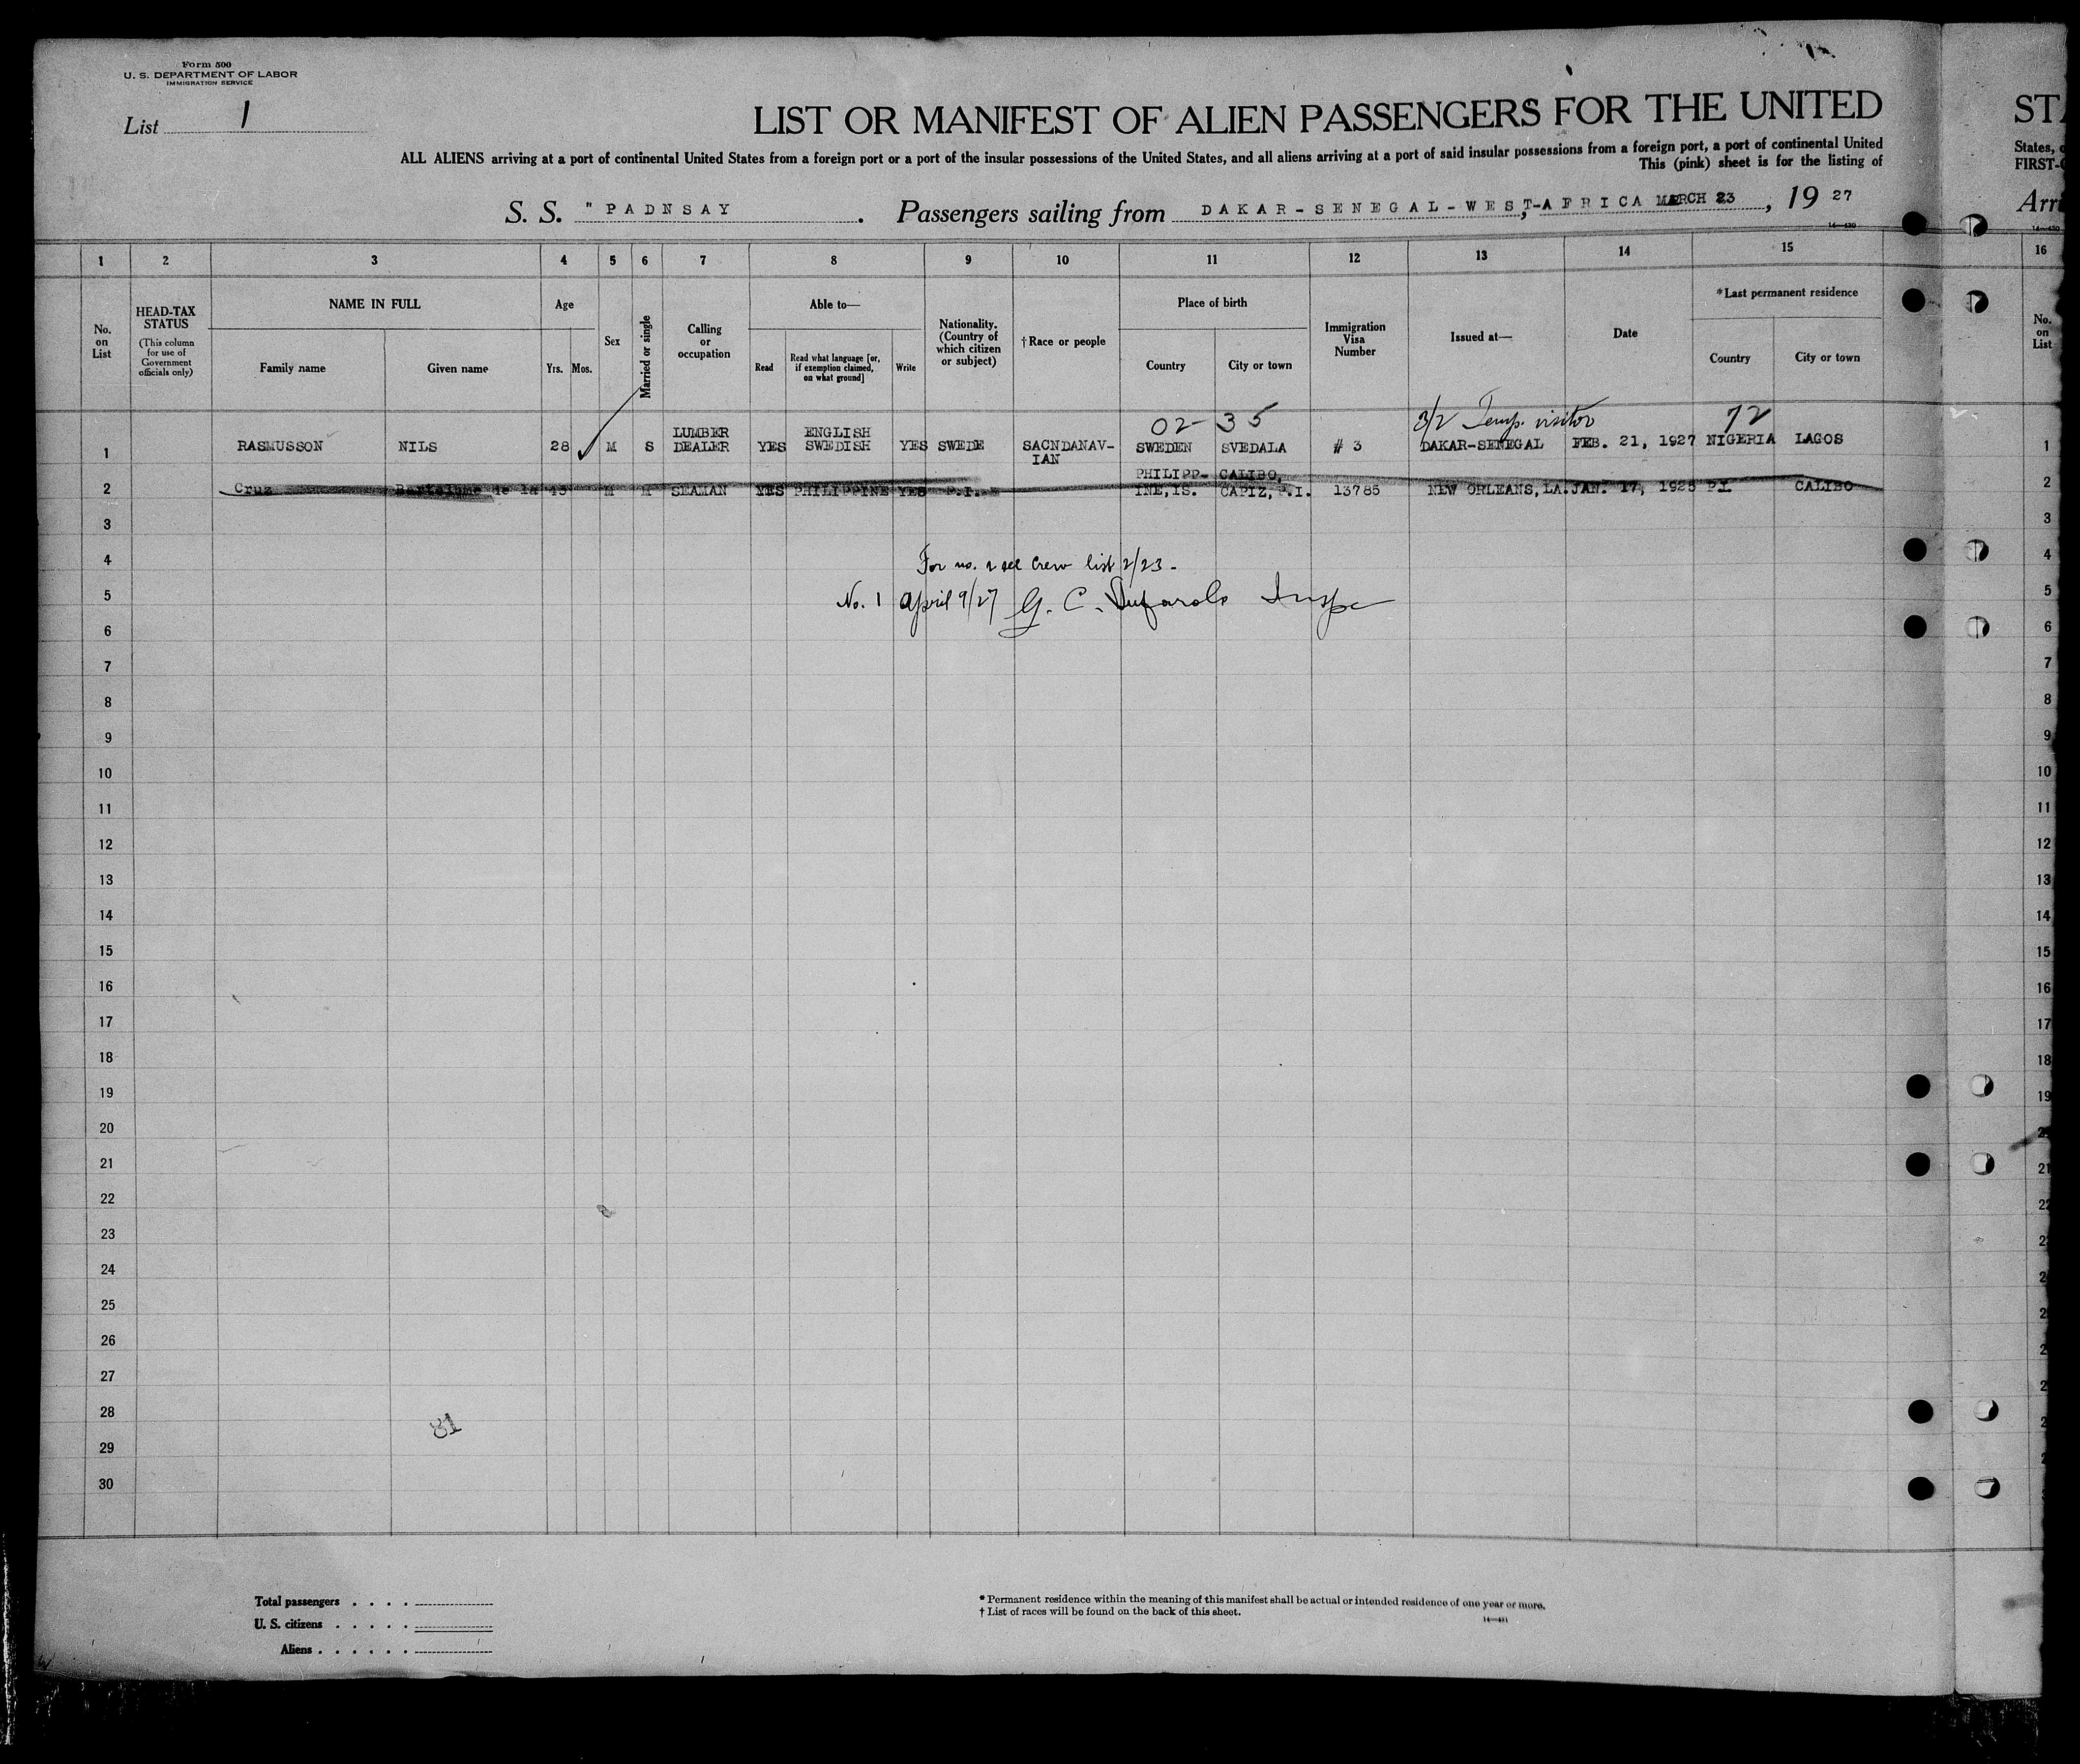 Form 500
U. S. DEPARTMENT OF LABOR
IMMIGRATION SERVICE
List 1
LIST OR MANIFEST OF ALIEN PASSENGERS FOR THE UNITED
ALL ALIENS arriving at a port of continental United States from a foreign port or a port of the insular possessions of the United States, and all aliens arriving at a port of said insular possessions from a foreign port, a port of continental United
This (pink) sheet is for the listing of
S. S. "PADNSAY . Passengers sailing from DAKAR-SENEGAL-WEST-AFRICA MARCH 23, 19 27
14—430
ST
States,
FIRST-
Arri
14—430
1 2 3 4 5 6 7 8 9 10 11 12 13 14 15 16
No. on List
HEAD-TAX STATUS
(This column for use of Government officials only)
NAME IN FULL
Family name
Given name
Age
Yrs. Mos.
Sex
Married or single
Calling or occupation
Able to—
Read
Read what language [or, if exemption claimed, on what ground]
Write
Nationality. (Country of which citizen or subject)
†Race or people
Place of birth
Country
City or town
Immigration Visa Number
Issued at—
Date
*Last permanent residence
Country
City or town
No. on List
02-35 3/2 Temp. visitor 72
1 RASMUSSON NILS 28 M S LUMBER DEALER YES ENGLISH SWEDISH YES SWEDE SACNDANAV-IAN SWEDEN SVEDALA # 3 DAKAR-SENEGAL FEB. 21, 1927 NIGERIA LAGOS 1
2 Cruz de la M SEAMAN YES PHILIPPINE YES P.I. PHILIPP-INE,IS. CALIBO, CAPIZ, P.I. 13785 NEW ORLEANS, LA. JAN. 17, 1925 P.I. CALIBO 2
3 3
4 For no. 2 see Crew list 2/23 - 4
5 No. 1 April 9/27 G. C. Insp 5
6 6
7 7
8 8
9 9
10 10
11 11
12 12
13 13
14 14
15 15
16 16
17 17
18 18
19 19
20
21 21
22
23
24
25
26
27
28
81
29
30
Total passengers . . . .
U. S. citizens . . . . .
Aliens . . . . . .
* Permanent residence within the meaning of this manifest shall be actual or intended residence of one year or more.
† List of races will be found on the back of this sheet.
14—431